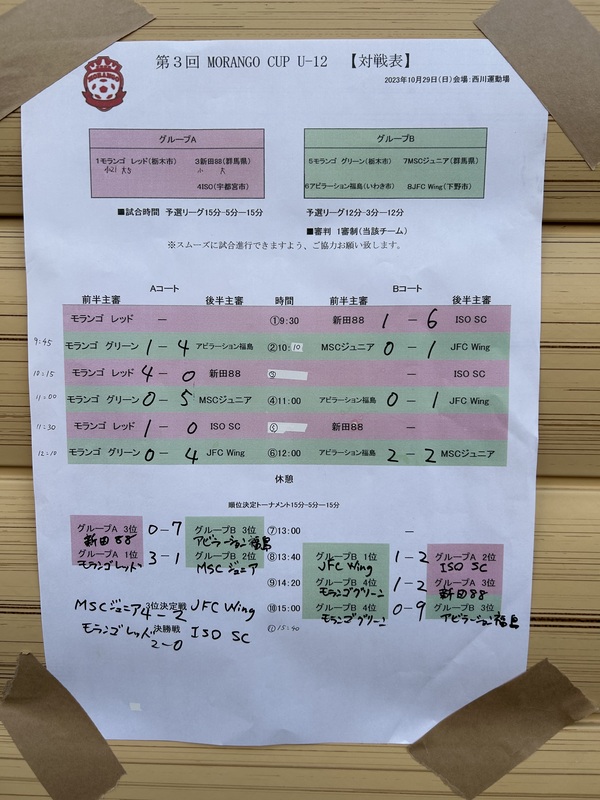 第3回 MORANGO CUP U-12 【対戦表】
2023年10月29日(日)会場:西川運動場
MORANGO
グループA
1モランゴ レッド(栃木市) 3新田88(群馬県)
4ISO(宇都宮市)
グループB
5モランゴ グリーン(栃木市) 7MSCジュニア(群馬県)
6アビラーション福島(いわき市) 8JFC Wing(下野市)
■試合時間 予選リーグ15分-5分-15分 予選リーグ12分-3分-12分
■審判 1審制(当該チーム)
※スムーズに試合進行できますよう、ご協力お願い致します。
Aコート Bコート
前半主審 後半主審 時間 前半主審 後半主審
モランゴ レッド — ①9:30 新田88 1 — 6 ISO SC
9:45 モランゴ グリーン 1 — 4 アビラーション福島 ②10:10 MSCジュニア 0 — 1 JFC Wing
10:15 モランゴ レッド 4 — 0 新田88 ③ — ISO SC
11:00 モランゴ グリーン 0 — 5 MSCジュニア ④11:00 アビラーション福島 0 — 1 JFC Wing
11:30 モランゴ レッド 1 — 0 ISO SC ⑤ 新田88 —
12:10 モランゴ グリーン 0 — 4 JFC Wing ⑥12:00 アビラーション福島 2 — 2 MSCジュニア
休憩
順位決定トーナメント15分-5分-15分
グループA 3位 0-7 グループB 3位 ⑦13:00 —
新田88 アビラーション福島
グループA 1位 3-1 グループB 2位 ⑧13:40 グループB 1位 1-2 グループA 2位
モランゴレッド MSCジュニア JFC Wing ISO SC
⑨14:20 グループB 4位 1-2 グループA 3位
モランゴグリーン 新田88
MSCジュニア 3位決定戦 JFC Wing ⑩15:00 グループB 4位 0-9 グループB 3位
4-2 モランゴグリーン アビラーション福島
モランゴレッド 決勝戦 ISO SC ⑪15:40
2-0